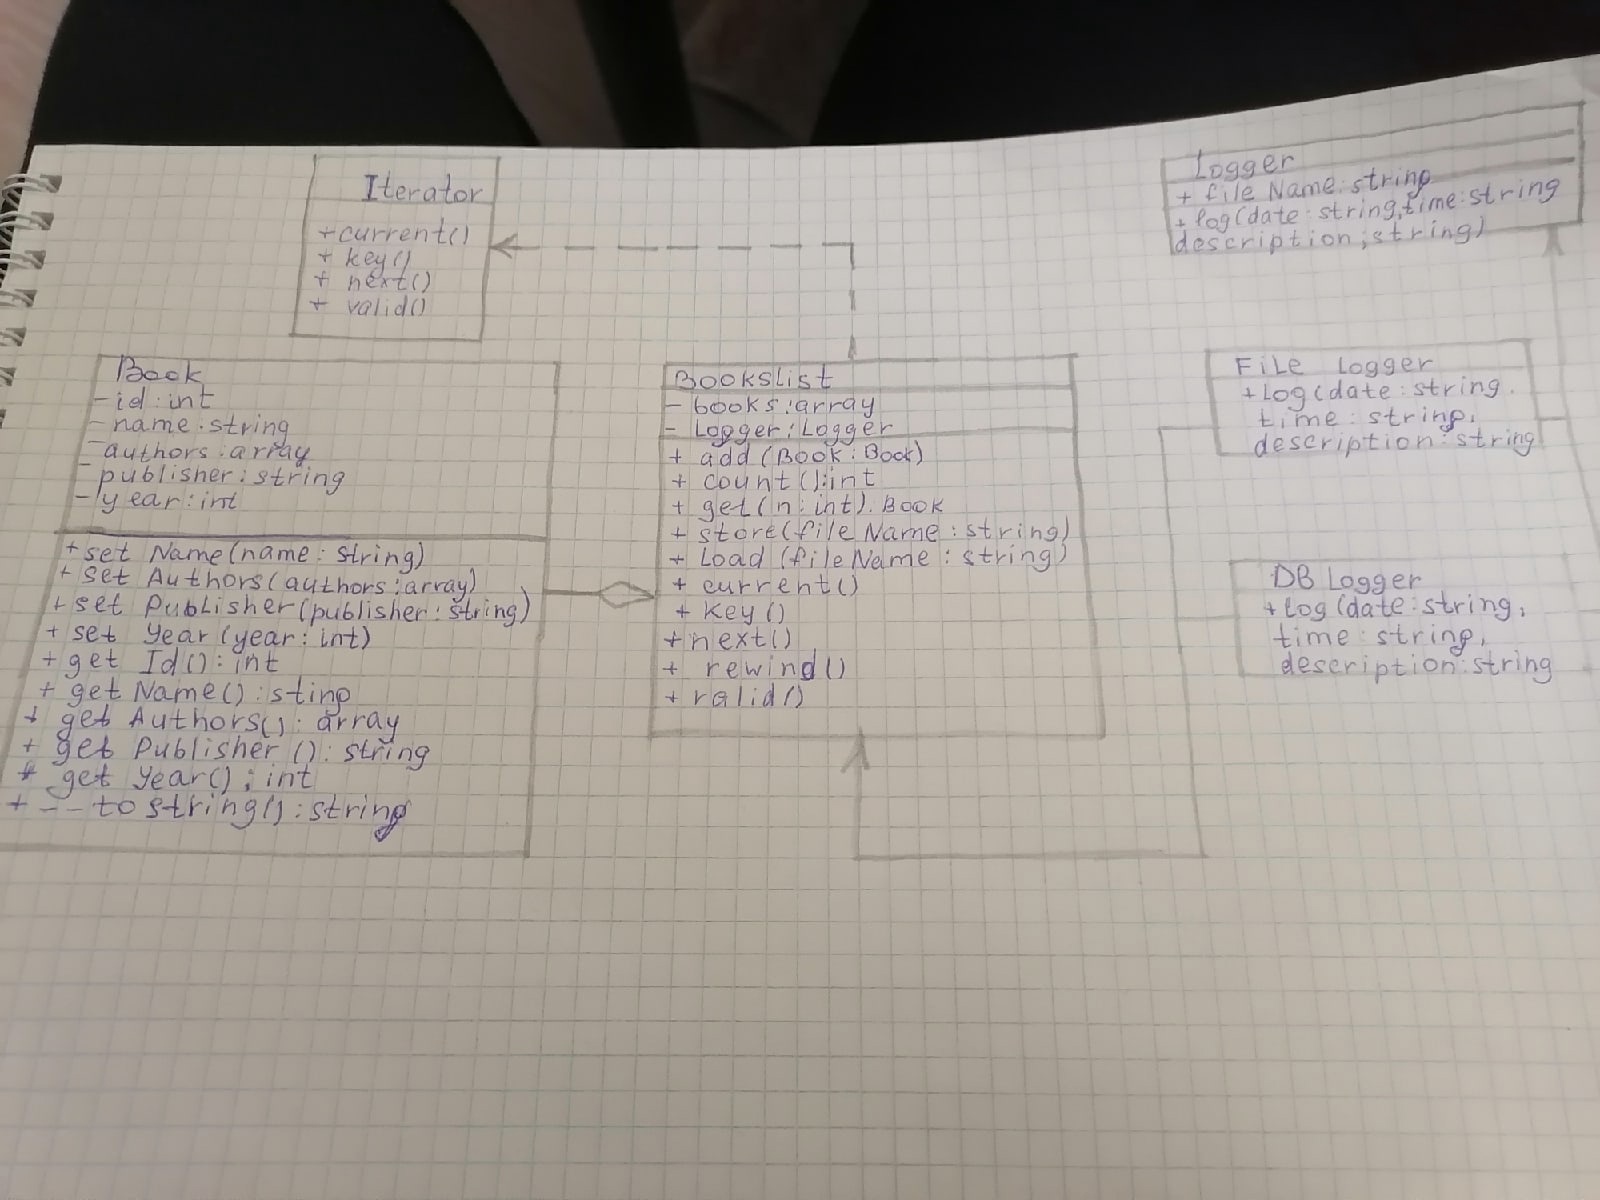 Iterator
+current()
+ key()
+ next()
+ valid()
Logger
+ file Name:string
+ log(date:string,time:string
description;string)
Book
- id:int
- name:string
- authors:array
- publisher:string
- year:int
+ set Name(name: string)
+ set Authors(authors:array)
+ set Publisher(publisher:string)
+ set Year(year:int)
+ get Id():int
+ get Name():stinp
+ get Authors(): array
+ get Publisher (): string
+ get Year();int
+ -- to string():string
BooksList
- books:array
- Logger:Logger
+ add(Book:Book)
+ count():int
+ get(n:int).Book
+ store(file Name:string)
+ Load (fileName:string)
+ current()
+ Key()
+ next()
+ rewind()
+ valid()
File Logger
+ Log(date:string.
time:string,
description:string
DB Logger
+ Log(date:string,
time:string,
description:string